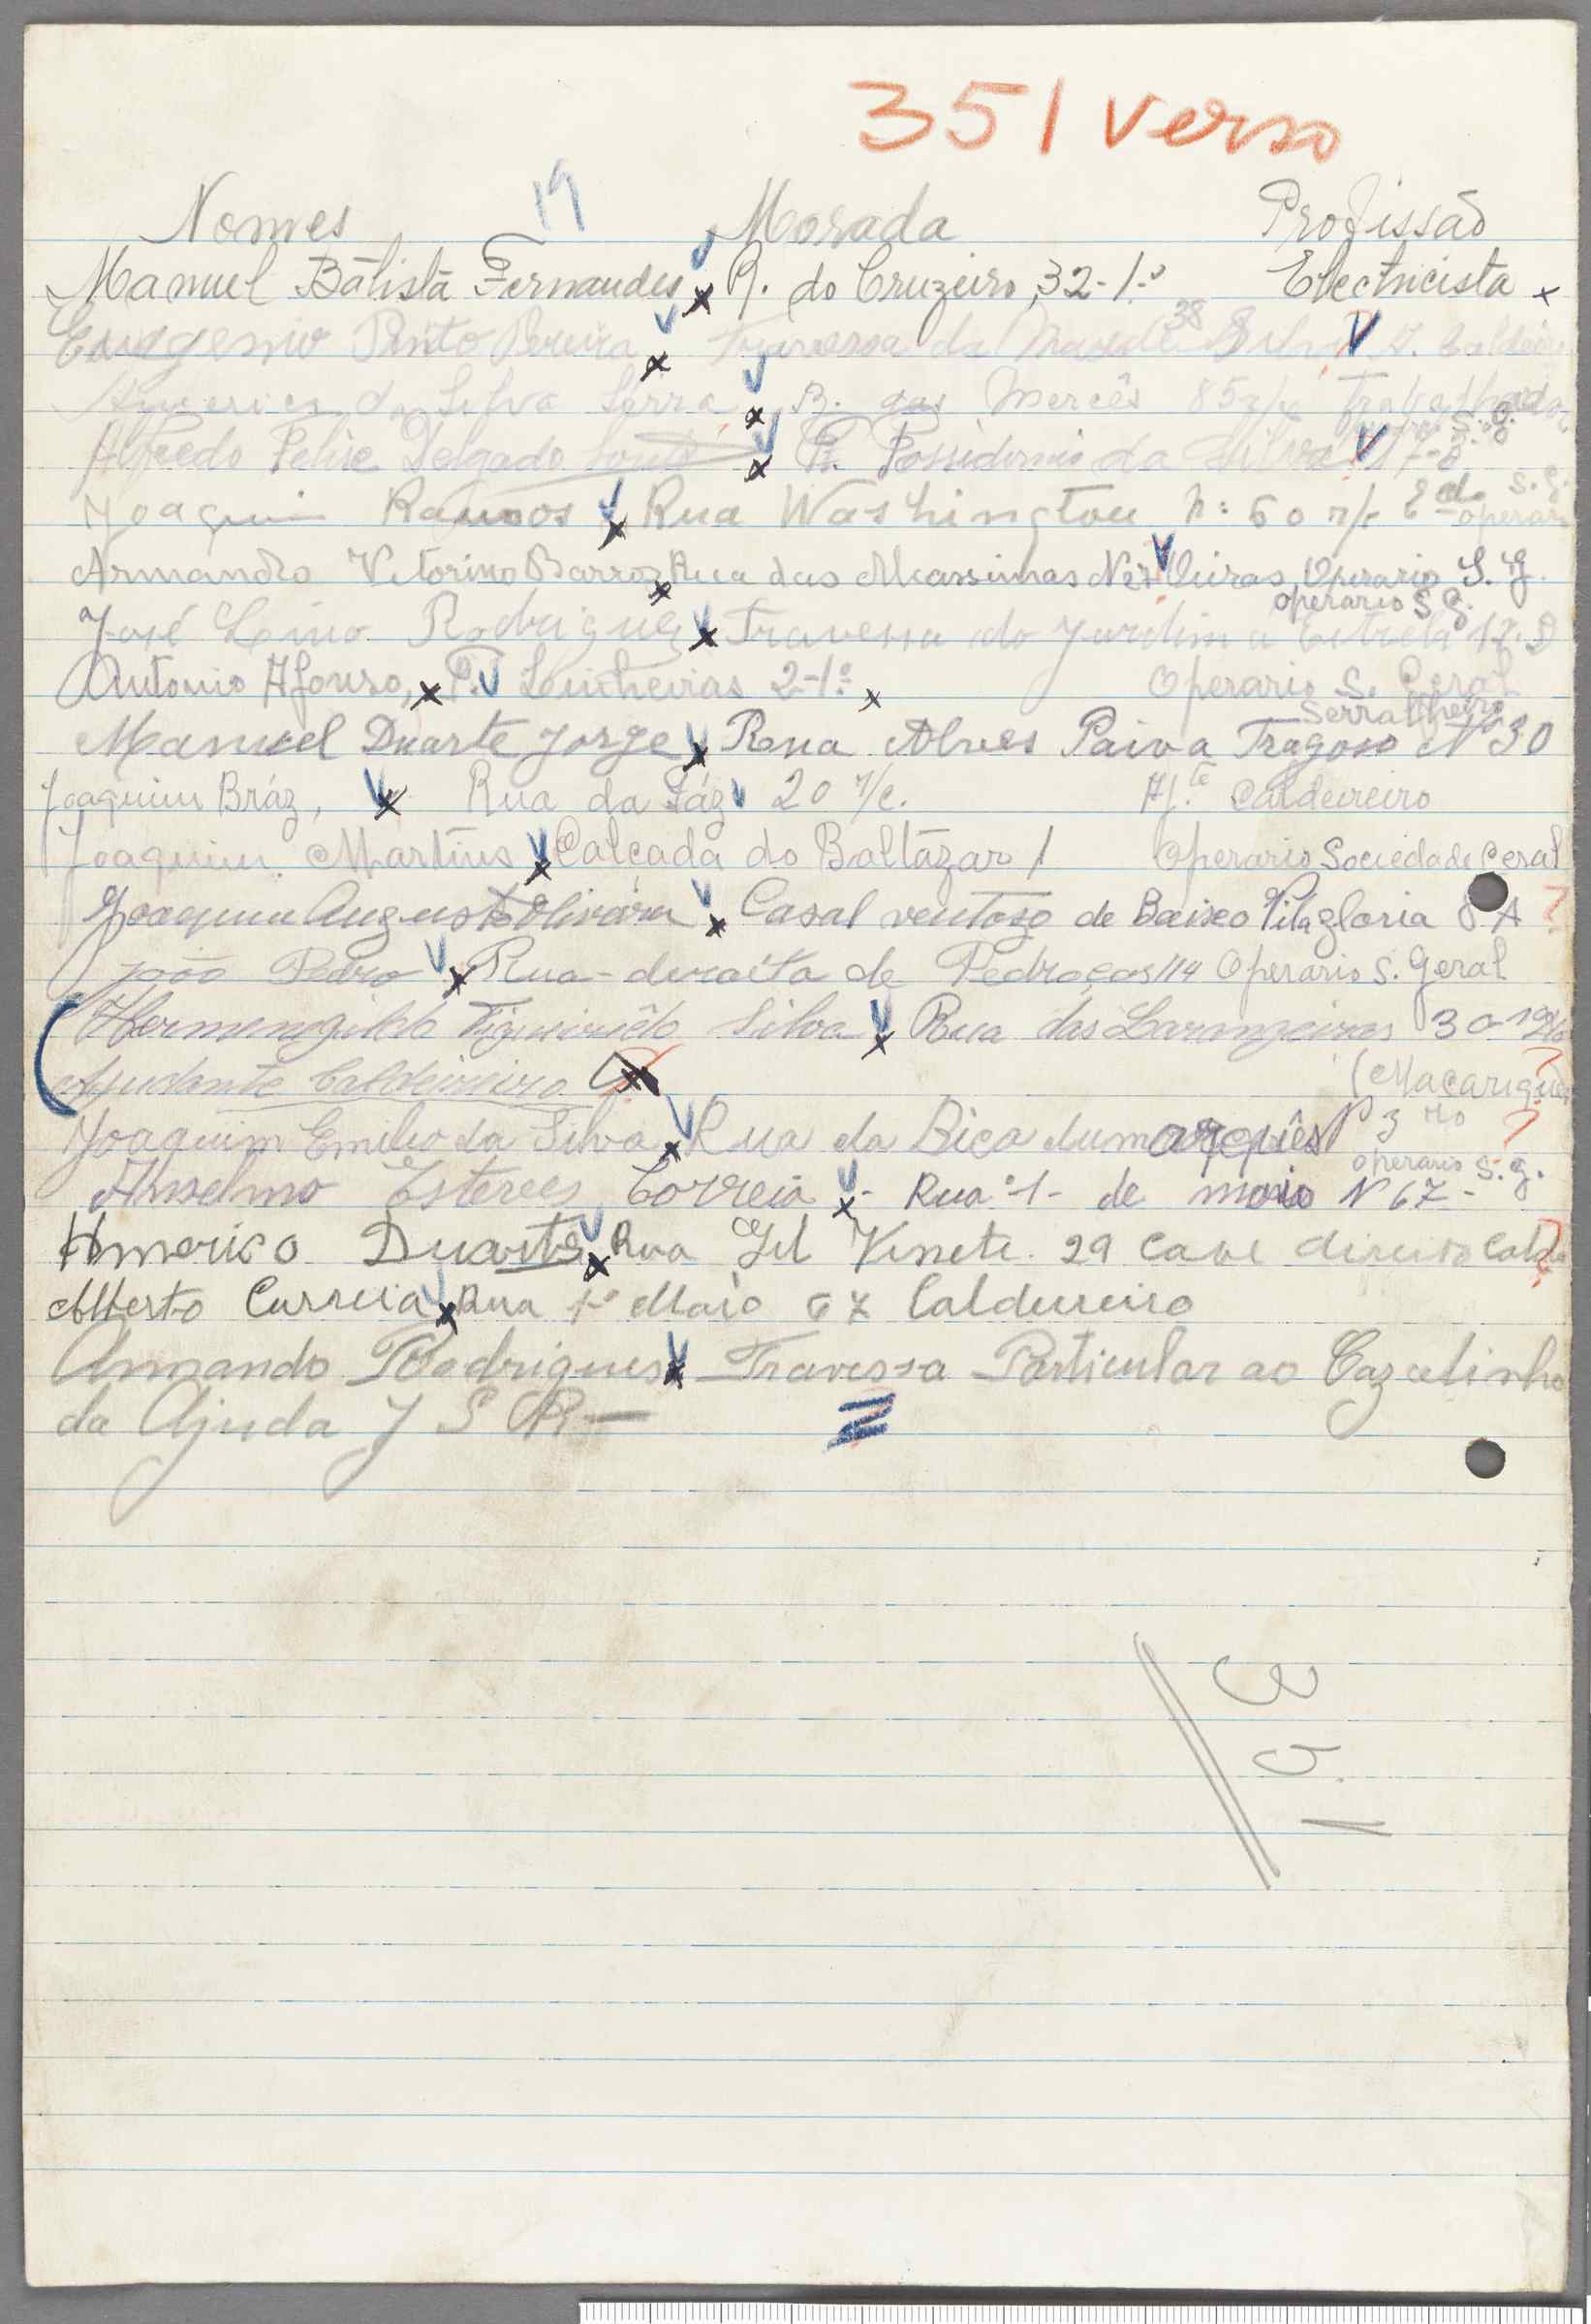 351 verso
19
Nomes Morada Profissão
Manuel Bàtista Fernandes x R. do Cruzeiro, 32-1.º Electricista x
Eugenio Pinto Pereira x Travessa da 38
Americo da Silva Serra x R. das Mercês 85 r/c
Alfredo Felise Delgado x R. Possidonio da Silva 17-
S. G.
Joaquim Ramos x Rua Washington N: 60 r/c E do operar S. G.
Armando Vitorino Barros x Rua das Massimas Oeiras, Operario S. G.
operario S G.
José Lino Rodrigues x Travessa do Jardim a Estrela 17.
Antonio Afonso, x 2-1º x Operario S. Geral
Serralheiro
Manuel Duarte Jorge x Rua Alves Paiva Fragoso Nº 30
Joaquim Bráz, x Rua da Páz 20 r/c. Aj.te Caldeireiro
Joaquim Martins x Calçada do Baltàzar 1 Operario Sociedade Geral
Joaquim Augusto Oliveira x Casal ventozo de Baixo Vila gloria 8 A ?
João Pedro x Rua-direita de Pedroços 114 Operario S. Geral
Hermenegildo Figueirêdo Silva x Rua das Laranjeiras 30-1º
Ajudante Caldeireiro x ?
Joaquim Emilio da Silva x Rua da Bica dumarquês Nº 3 ?
operario S. G.
Anselmo Esteves Correia x - Rua 1- de maio Nº 67-
Americo Duarte x Rua Gil Vesete. 29 Cave direito ?
Alberto Curreia x Rua 1º Maio 67 Caldureiro
Armando Rodrigues x Travessa Particular ao Cazalinho
da Ajuda J S R-